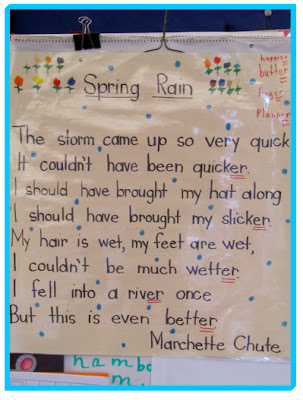 Spring Rain
happier
butter
Planner
The storm came up so very quick
It couldn't have been quicker.
I should have brought my hat along
I should have brought my slicker.
My hair is wet, my feet are wet,
I couldn't be much wetter.
I fell into a river once
But this is even better.
Marchette Chute